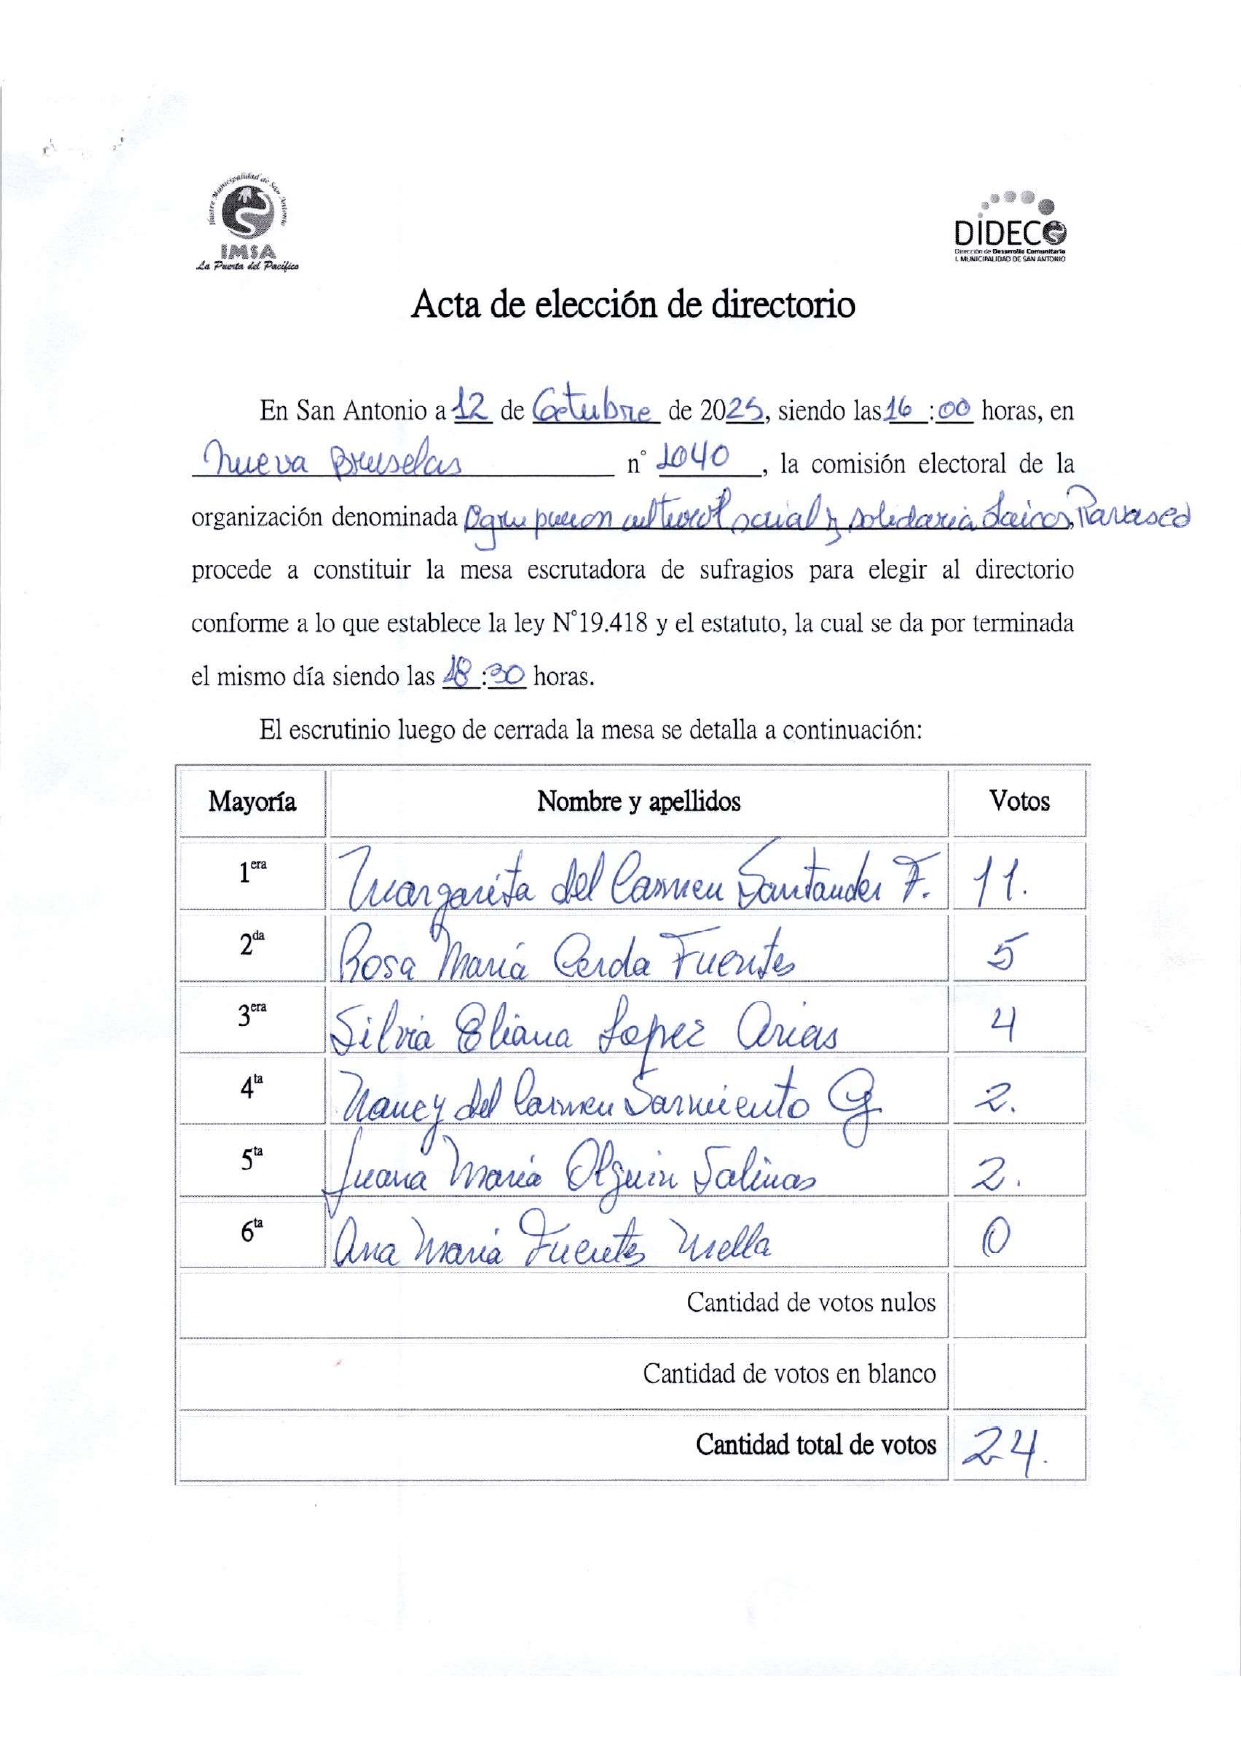 Ilustre Municipalidad de San Antonio
IMSA
La Puerta del Pacífico
DIDECO
Dirección de Desarrollo Comunitario
I. MUNICIPALIDAD DE SAN ANTONIO
Acta de elección de directorio
En San Antonio a 12 de Octubre de 2025, siendo las 16:00 horas, en
Nueva Bruselas n° 1040, la comisión electoral de la
organización denominada Agrupacion cultural social y solidaria Laicos
procede a constituir la mesa escrutadora de sufragios para elegir al directorio
conforme a lo que establece la ley N°19.418 y el estatuto, la cual se da por terminada
el mismo día siendo las 18:30 horas.
El escrutinio luego de cerrada la mesa se detalla a continuación:
Mayoría Nombre y apellidos Votos
1era Margarita del Carmen Santander F. 11.
2da Rosa María Cerda Fuentes 5
3era Silvia Eliana Lopez Arias 4
4ta Nancy del Carmen Sarmiento G 2.
5ta Juana María Olguin Salinas 2.
6ta Ana María Fuentes Mella 0
Cantidad de votos nulos
Cantidad de votos en blanco
Cantidad total de votos 24.